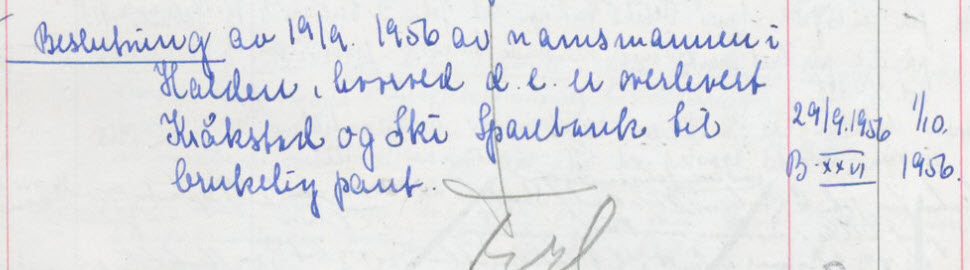 Beslutning av 19/9. 1956 av namsmannen i
Halden, hvorved d. e. er overlevert
Kråkstad og Ski Sparebank til
brukelig pant.
29/9.1956 1/10.
B. XXVI 1956.